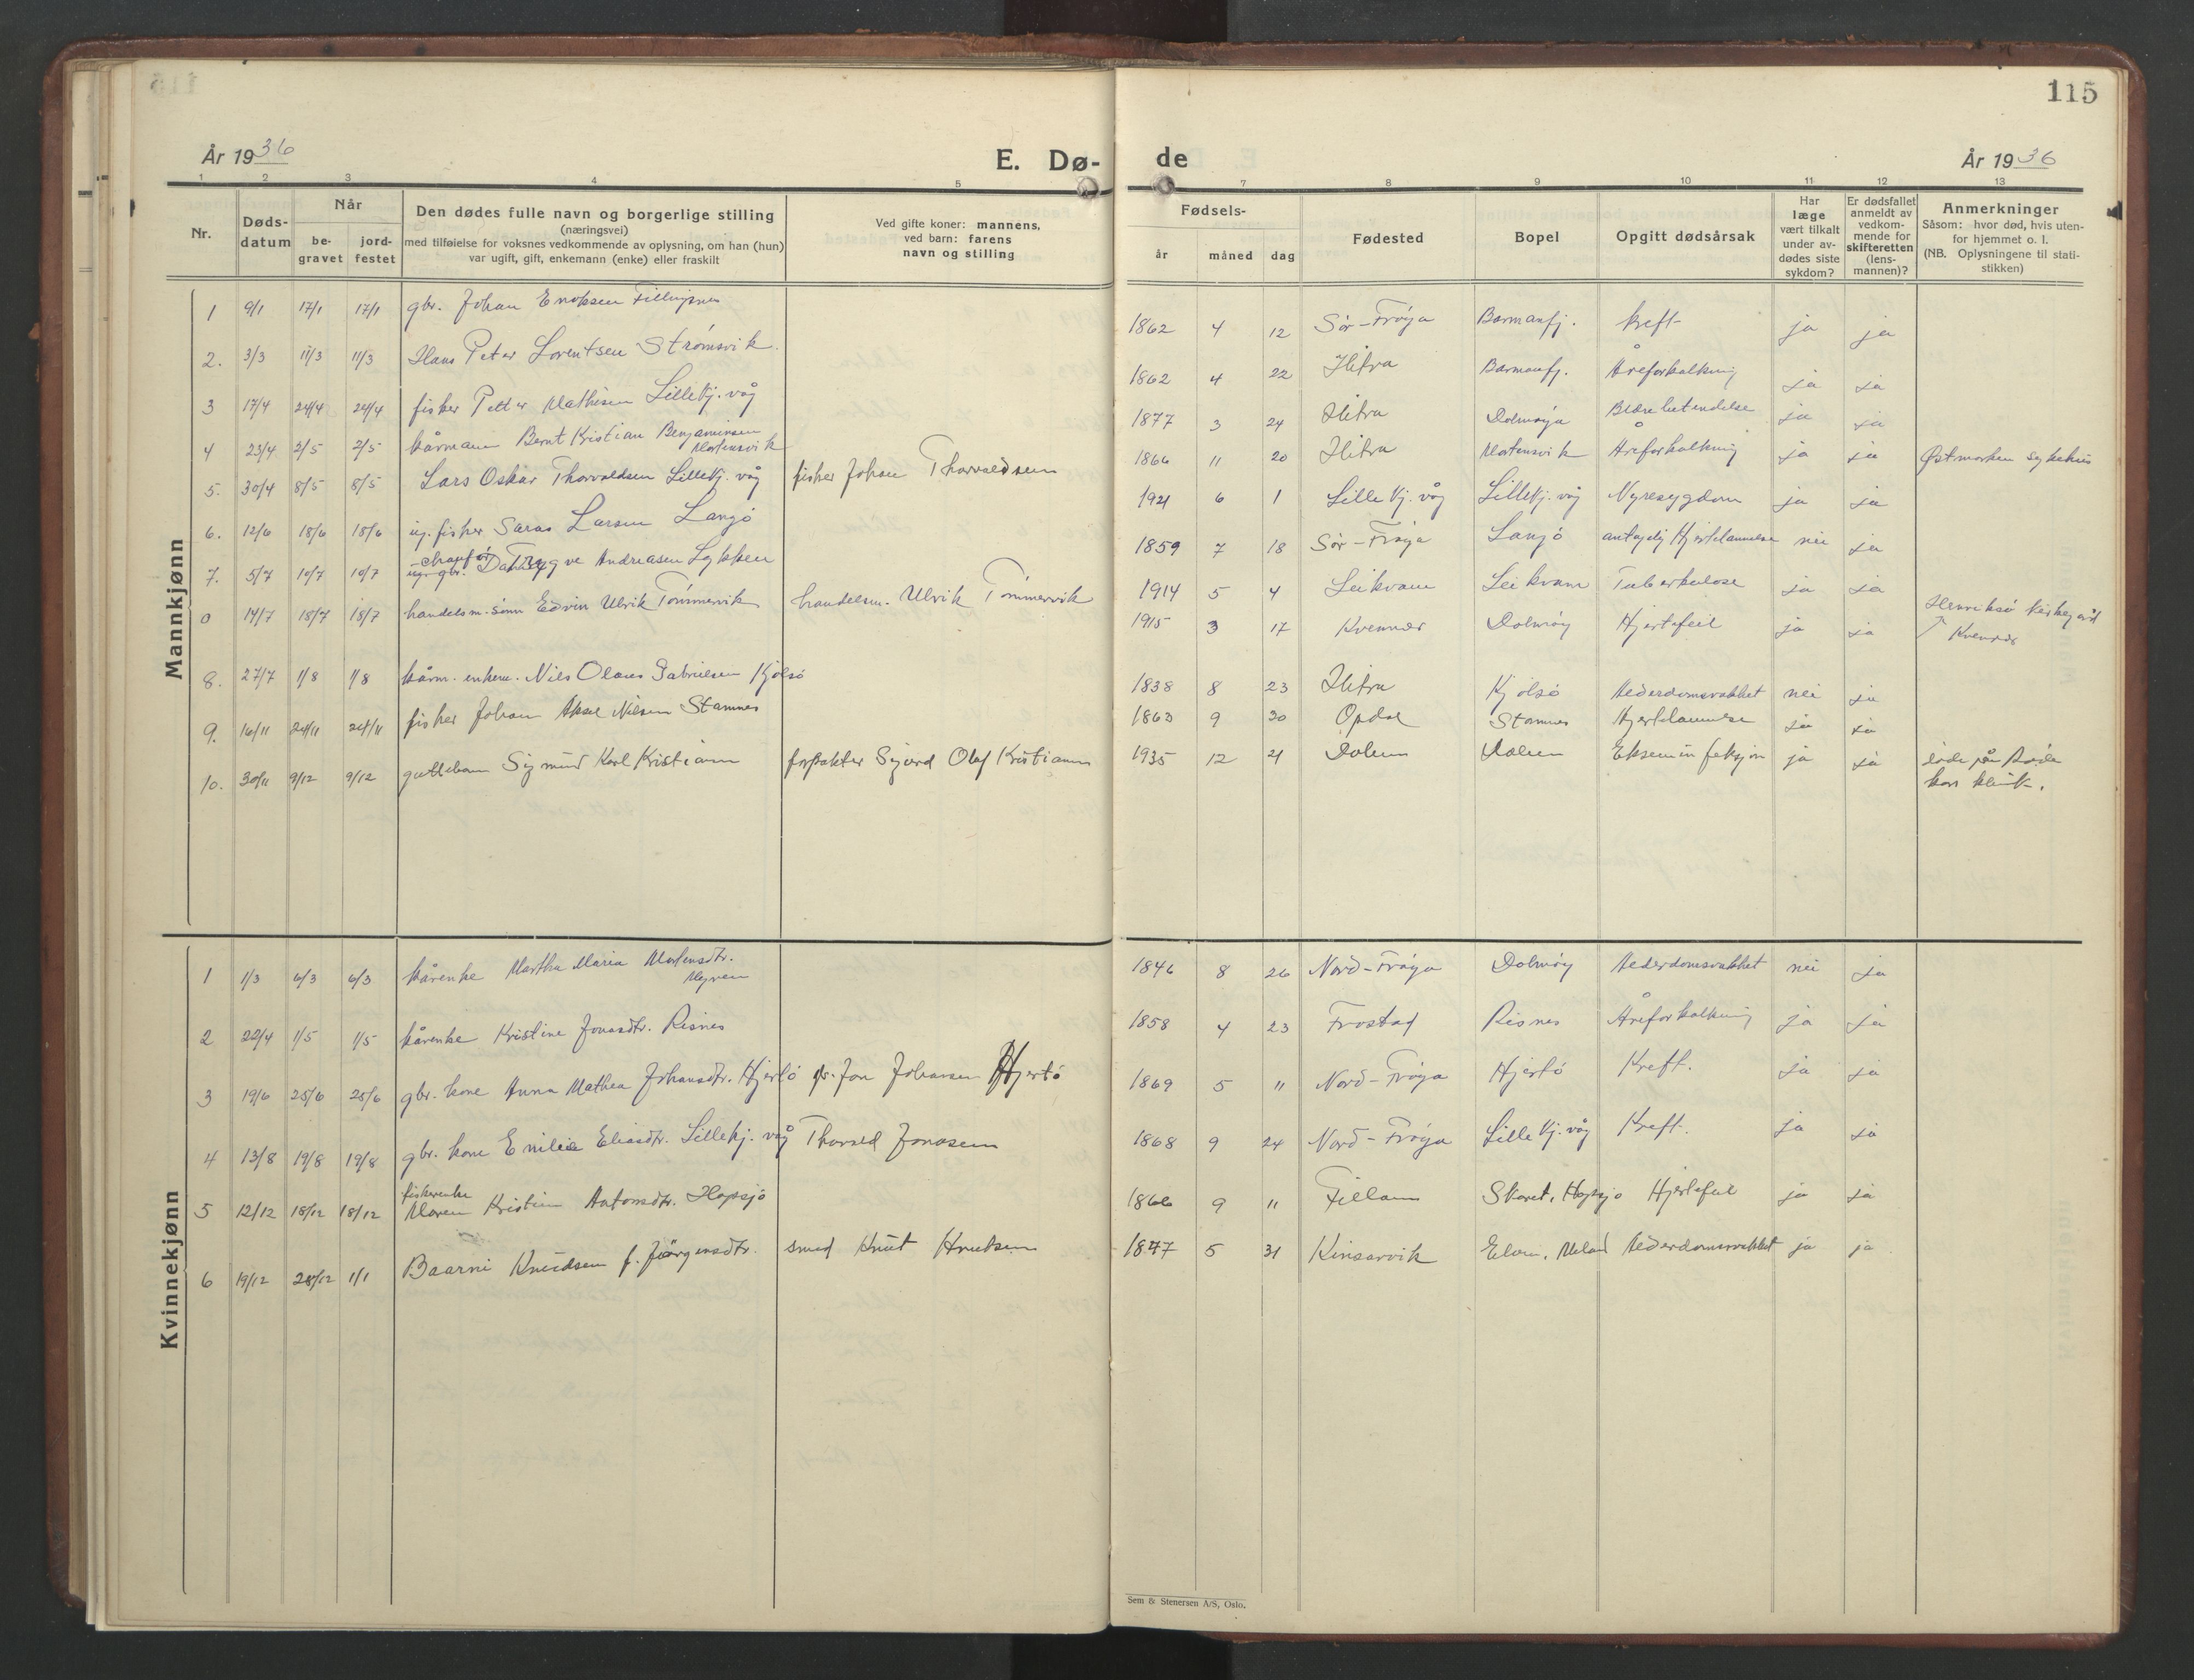 115
År 1936
E. Dø-
de
År 1936
1 2 3 4 5 7 8 9 10 11 12 13
Nr.
Døds-
datum
Når
be-
gravet
jord-
festet
Den dødes fulle navn og borgerlige stilling
(næringsvei)
med tilføielse for voksnes vedkommende av oplysning, om han (hun)
var ugift, gift, enkemann (enke) eller fraskilt
Ved gifte koner: mannens,
ved barn: farens
navn og stilling
Fødsels-
år måned dag
Fødested
Bopel
Opgitt dødsårsak
Har
læge
vært tilkalt
under av-
dødes siste
sykdom?
Er dødsfallet
anmeldt av
vedkom-
mende for
skifteretten
(lens-
mannen)?
Anmerkninger
Såsom: hvor død, hvis uten-
for hjemmet o. l.
(NB. Oplysningene til stati-
stikken)
Mannkjønn
1 9/1 17/1 17/1 gbr. Johan Enoksen Fillingsnes 1862 4 12 Sør-Frøya Barmanfj. kreft ja ja
2. 3/3 11/3 11/3 Hans Peter Lorentsen Strømsvik. 1862 4 22 Hitra Barmanfj. Åreforkalkning ja ja
3 17/4 24/4 24/4 fisker Petter Mathisen Lillekj. våg 1877 3 24 Hitra Dolmøya Blærebetendelse ja ja
4 23/4 2/5 2/5 kårmann Bernt Kristian Benjaminsen
Mortensvik 1866 11 20 Hitra Mortensvik Åreforkalkning ja ja Østmarken sykehus
5. 30/4 8/5 8/5 Lars Oskar Thorvaldsen Lillekj. våg fisker Johan Thorvaldsen 1921 6 1 Lillekj. våg Lillekj. våg Nyresygdom ja ja
6. 12/6 18/6 18/6 ug. fisker Larsen Langø 1859 7 18 Sør-Frøya Langø antagelig Hjertelammelse nei ja
7. 5/7 10/7 10/7 Trygve Andreasen Lykken 1914 5 4 Leikvam Leikvam Tuberkulose ja ja
0 14/7 18/7 18/7 handelsm. sønn Edvin Ulrik Tømmervik handelsm. Ulrik Tømmervik 1915 3 17 Kvennær Dolmøy Hjertefeil ja ja Henriksø kirkegård
Kvennær
8. 27/7 1/8 1/8 kårm. enkem. Nils Olaus Gabrielsen Kjølsø 1838 8 23 Hitra Kjølsø Alderdomsvakhet nei ja
9. 16/11 24/11 24/11 fisker Johan Aksel Nilsen Stamnes 1863 9 30 Opdal Stamnes Hjertelammelse ja ja
10. 30/11 9/12 9/12 guttebarn Sigmund Karl Kristiansen forpakter Sigurd Olaf Kristiansen 1935 12 21 Dolmen Dolmen Eksem infeksjon ja ja
klinik.
Kvinnekjønn
1 1/3 6/3 6/3 kårenke Martha Maria Mortensdtr.
Myren 1846 8 26 Nord-Frøya Dolmøy Alderdomsvakhet nei ja
2 22/4 1/5 1/5 kårenke Kristine Jonasdtr. Risnes 1858 4 23 Frostad Risnes Åreforkalkning ja ja
3 19/6 25/6 25/6 gbr. kone Anna Mathea Johansdtr. Hjertø gbr. Jon Johansen Hjertø 1869 5 " Nord-Frøya Hjertø Kreft. ja ja
4 13/8 19/8 19/8 gbr. kone Emilie Eliasdtr. Lillekj. våg Thorvald Jonasen 1868 9 24 Nord-Frøya Lillekj. våg Kreft. ja ja
fiskerenke
5 12/12 18/12 18/12 Maren Kristine Antonsdtr. Hopsjø 1866 9 " Fillan Skaret, Hopsjø Hjertefeil ja ja
6 19/12 28/12 1/1 Baarni Knudsen f. Jørgensdtr. smed Knut Knutsen 1847 5 31 Kinsarvik Meland Alderdomsvakhet ja ja
Sem & Stenersen A/S, Oslo.